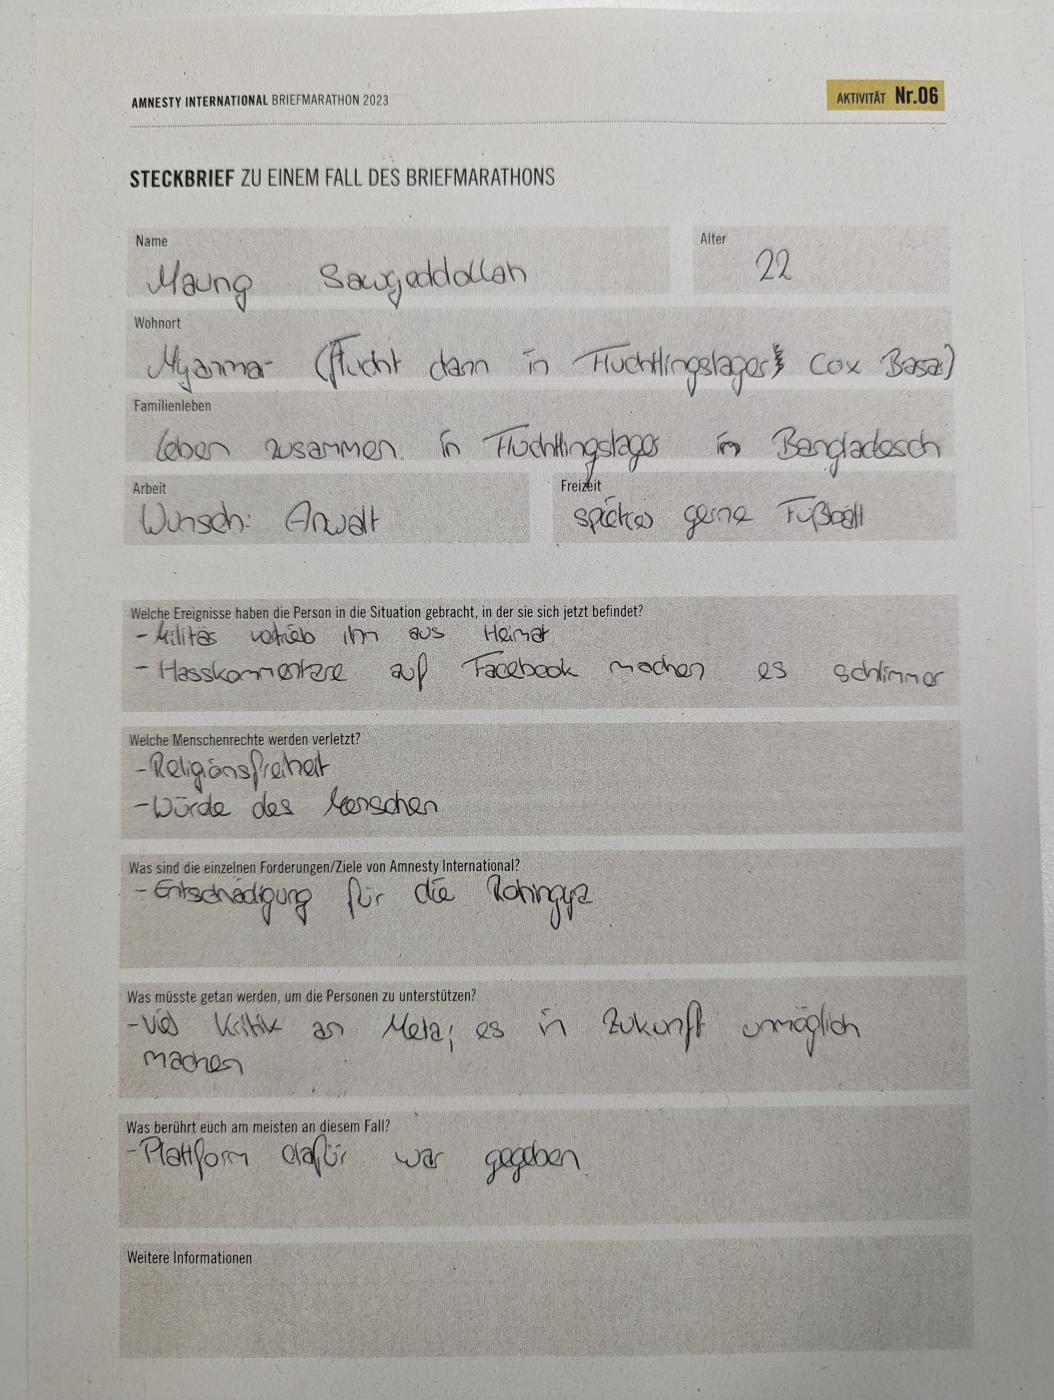 AMNESTY INTERNATIONAL BRIEFMARATHON 2023
AKTIVITÄT Nr.06
STECKBRIEF ZU EINEM FALL DES BRIEFMARATHONS
Name
Maung Sawyeddollah
Alter
22
Wohnort
Myanmar (Flucht dann in Fluchtlingslager Cox Basar)
Familienleben
leben zusammen in Fluchtlingslager in Bangladesch
Arbeit
Wunsch: Anwalt
Freizeit
spielt gerne Fußball
Welche Ereignisse haben die Person in die Situation gebracht, in der sie sich jetzt befindet?
- Militär vertrieb ihn aus Heimat
- Hasskommentare auf Facebook machen es schlimmer
Welche Menschenrechte werden verletzt?
- Religionsfreiheit
- Würde des Menschen
Was sind die einzelnen Forderungen/Ziele von Amnesty International?
- Entschädigung für die Rohingya
Was müsste getan werden, um die Personen zu unterstützen?
- Viel Kritik an Meta; es in Zukunft unmöglich
machen
Was berührt euch am meisten an diesem Fall?
- Plattform dafür war gegeben.
Weitere Informationen